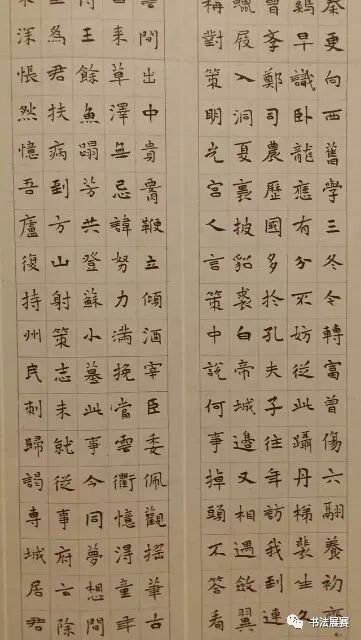 秦更向西舊學三冬今轉富曾傷六翮養初齊
早識臥龍應有分不妨從此躡丹梯裴生
曾季鄭司農歷國多於孔夫子往年訪我到連
屐入洞夏裏披貂裘白帝城邊又相遇斂翼
稱對策明光宮人言策中說何事掉頭不答看
間出中貴鞭立傾酒宰臣委佩觀搖筆古
來草澤無忌諱努力滿挽當雲衢憶得童年
王餘魚蹋芳共登蘇小墓此事今同夢想間
為君扶病到方山射策志未就從事府云除
深悵然憶吾廬復持州民刺歸謁專城居君
书法展赛